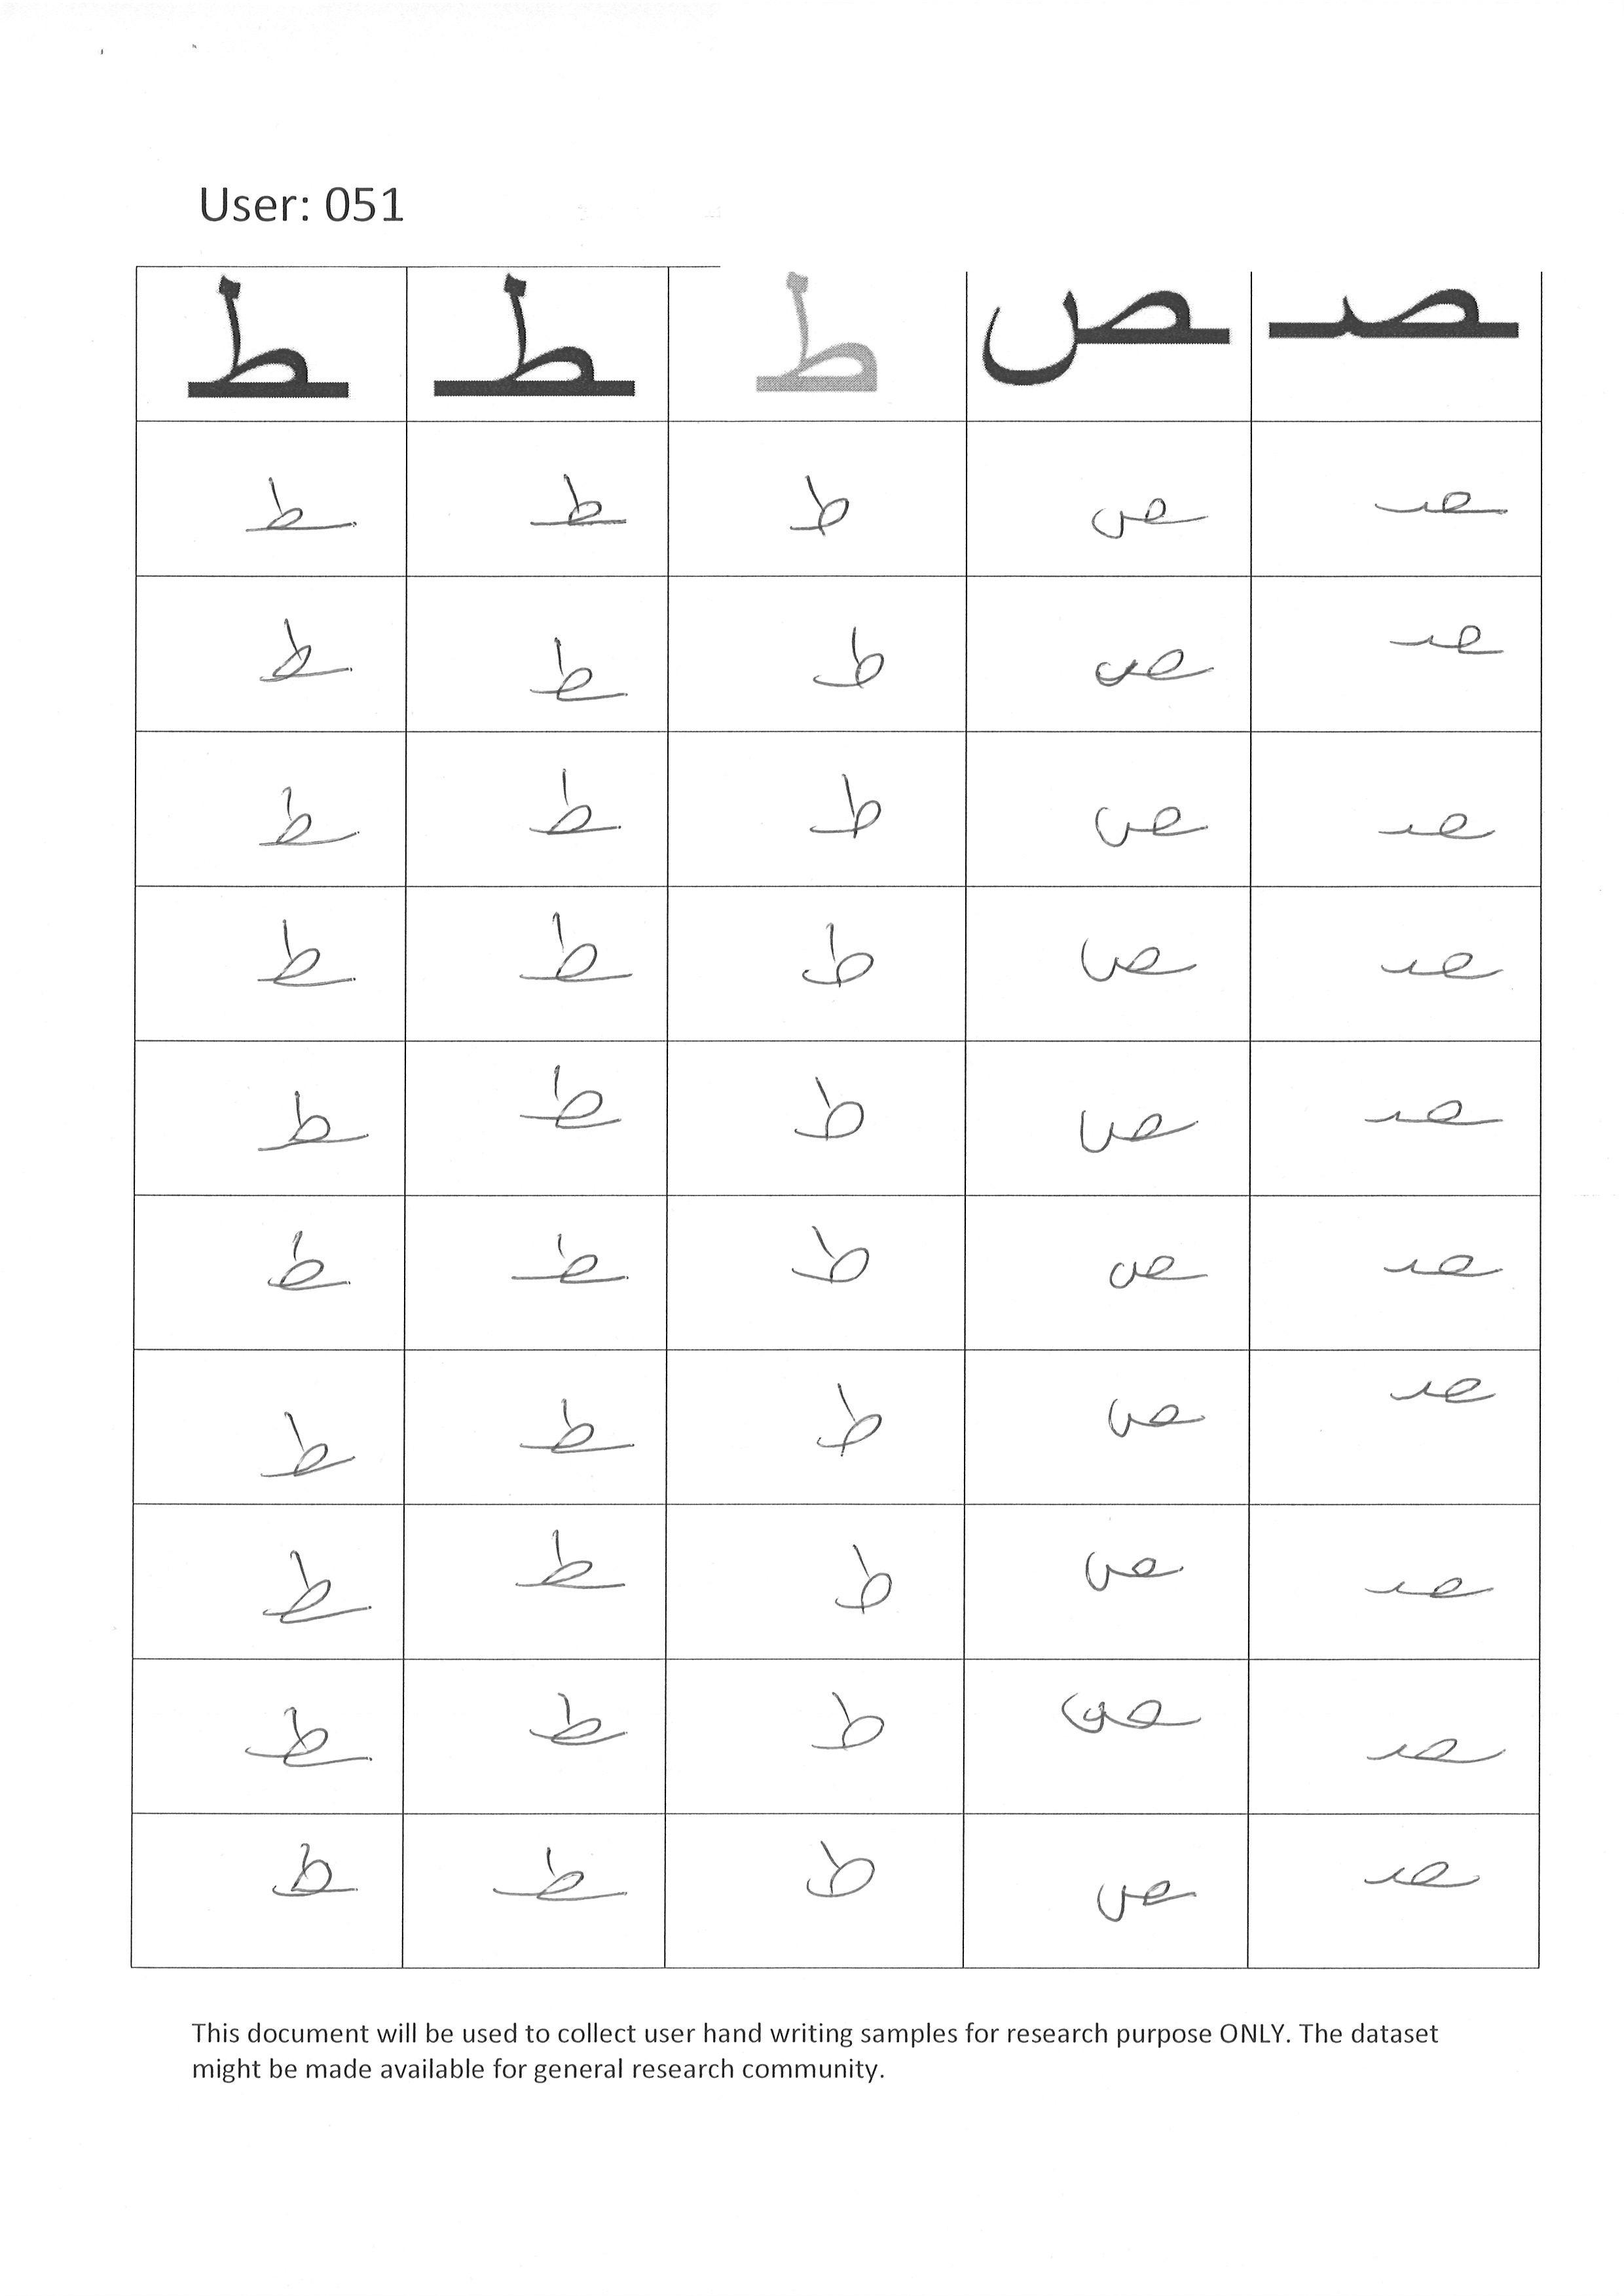 User: 051
ط ط ط ص صـ
ط ط ط ص صـ
ط ط ط ص صـ
ط ط ط ص صـ
ط ط ط ص صـ
ط ط ط ص صـ
ط ط ط ص صـ
ط ط ط ص صـ
ط ط ط ص صـ
ط ط ط ص صـ
ط ط ط ص صـ
This document will be used to collect user hand writing samples for research purpose ONLY. The dataset
might be made available for general research community.